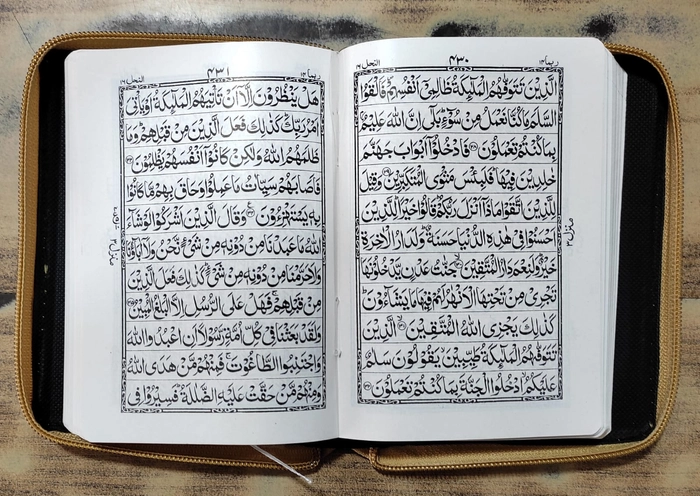 ربما ١٤ ٤٣٠ النحل ١٦
الَّذِیْنَ تَتَوَفّٰىهُمُ الْمَلٰٓىِٕكَةُ ظَالِمِیْۤ اَنْفُسِهِمْ۪ فَاَلْقَوُا
السَّلَمَ مَا كُنَّا نَعْمَلُ مِنْ سُوْٓءٍؕ بَلٰۤى اِنَّ اللّٰهَ عَلِیْمٌۢ
بِمَا كُنْتُمْ تَعْمَلُوْنَ ﴿۲۸﴾ فَادْخُلُوْۤا اَبْوَابَ جَهَنَّمَ
خٰلِدِیْنَ فِیْهَاؕ فَلَبِئْسَ مَثْوَى الْمُتَكَبِّرِیْنَ ﴿۲۹﴾ وَقِیْلَ
لِلَّذِیْنَ اتَّقَوْا مَاذَاۤ اَنْزَلَ رَبُّكُمْؕ قَالُوْا خَیْرًاؕ لِلَّذِیْنَ
اَحْسَنُوْا فِیْ هٰذِهِ الدُّنْیَا حَسَنَةٌؕ وَلَدَارُ الْاٰخِرَةِ
خَیْرٌؕ وَلَنِعْمَ دَارُ الْمُتَّقِیْنَ ﴿۳۰﴾ جَنّٰتُ عَدْنٍ یَّدْخُلُوْنَهَا
تَجْرِیْ مِنْ تَحْتِهَا الْاَنْهٰرُ لَهُمْ فِیْهَا مَا یَشَآءُوْنَؕ
كَذٰلِكَ یَجْزِی اللّٰهُ الْمُتَّقِیْنَ ﴿۳۱﴾ الَّذِیْنَ
تَتَوَفّٰىهُمُ الْمَلٰٓىِٕكَةُ طَیِّبِیْنَ یَقُوْلُوْنَ سَلٰمٌ
عَلَیْكُمُ ادْخُلُوا الْجَنَّةَ بِمَا كُنْتُمْ تَعْمَلُوْنَ ﴿۳۲﴾
منزل ۳
ربما ١٤ ٤٣١ النحل ١٦
هَلْ یَنْظُرُوْنَ اِلَّاۤ اَنْ تَاْتِیَهُمُ الْمَلٰٓىِٕكَةُ اَوْ یَاْتِیَ
اَمْرُ رَبِّكَؕ كَذٰلِكَ فَعَلَ الَّذِیْنَ مِنْ قَبْلِهِمْؕ وَمَا
ظَلَمَهُمُ اللّٰهُ وَلٰكِنْ كَانُوْۤا اَنْفُسَهُمْ یَظْلِمُوْنَ ﴿۳۳﴾
فَاَصَابَهُمْ سَیِّاٰتُ مَا عَمِلُوْا وَحَاقَ بِهِمْ مَّا كَانُوْا
بِهٖ یَسْتَهْزِءُوْنَ ﴿۳۴﴾ وَقَالَ الَّذِیْنَ اَشْرَكُوْا لَوْ شَآءَ
اللّٰهُ مَا عَبَدْنَا مِنْ دُوْنِهٖ مِنْ شَیْءٍ نَّحْنُ وَلَاۤ اٰبَآؤُنَا
وَلَا حَرَّمْنَا مِنْ دُوْنِهٖ مِنْ شَیْءٍؕ كَذٰلِكَ فَعَلَ الَّذِیْنَ
مِنْ قَبْلِهِمْۚ فَهَلْ عَلَى الرُّسُلِ اِلَّا الْبَلٰغُ الْمُبِیْنُ ﴿۳۵﴾
وَلَقَدْ بَعَثْنَا فِیْ كُلِّ اُمَّةٍ رَّسُوْلًا اَنِ اعْبُدُوا اللّٰهَ
وَاجْتَنِبُوا الطَّاغُوْتَۚ فَمِنْهُمْ مَّنْ هَدَى اللّٰهُ
وَمِنْهُمْ مَّنْ حَقَّتْ عَلَیْهِ الضَّلٰلَةُؕ فَسِیْرُوْا فِی
منزل ۳